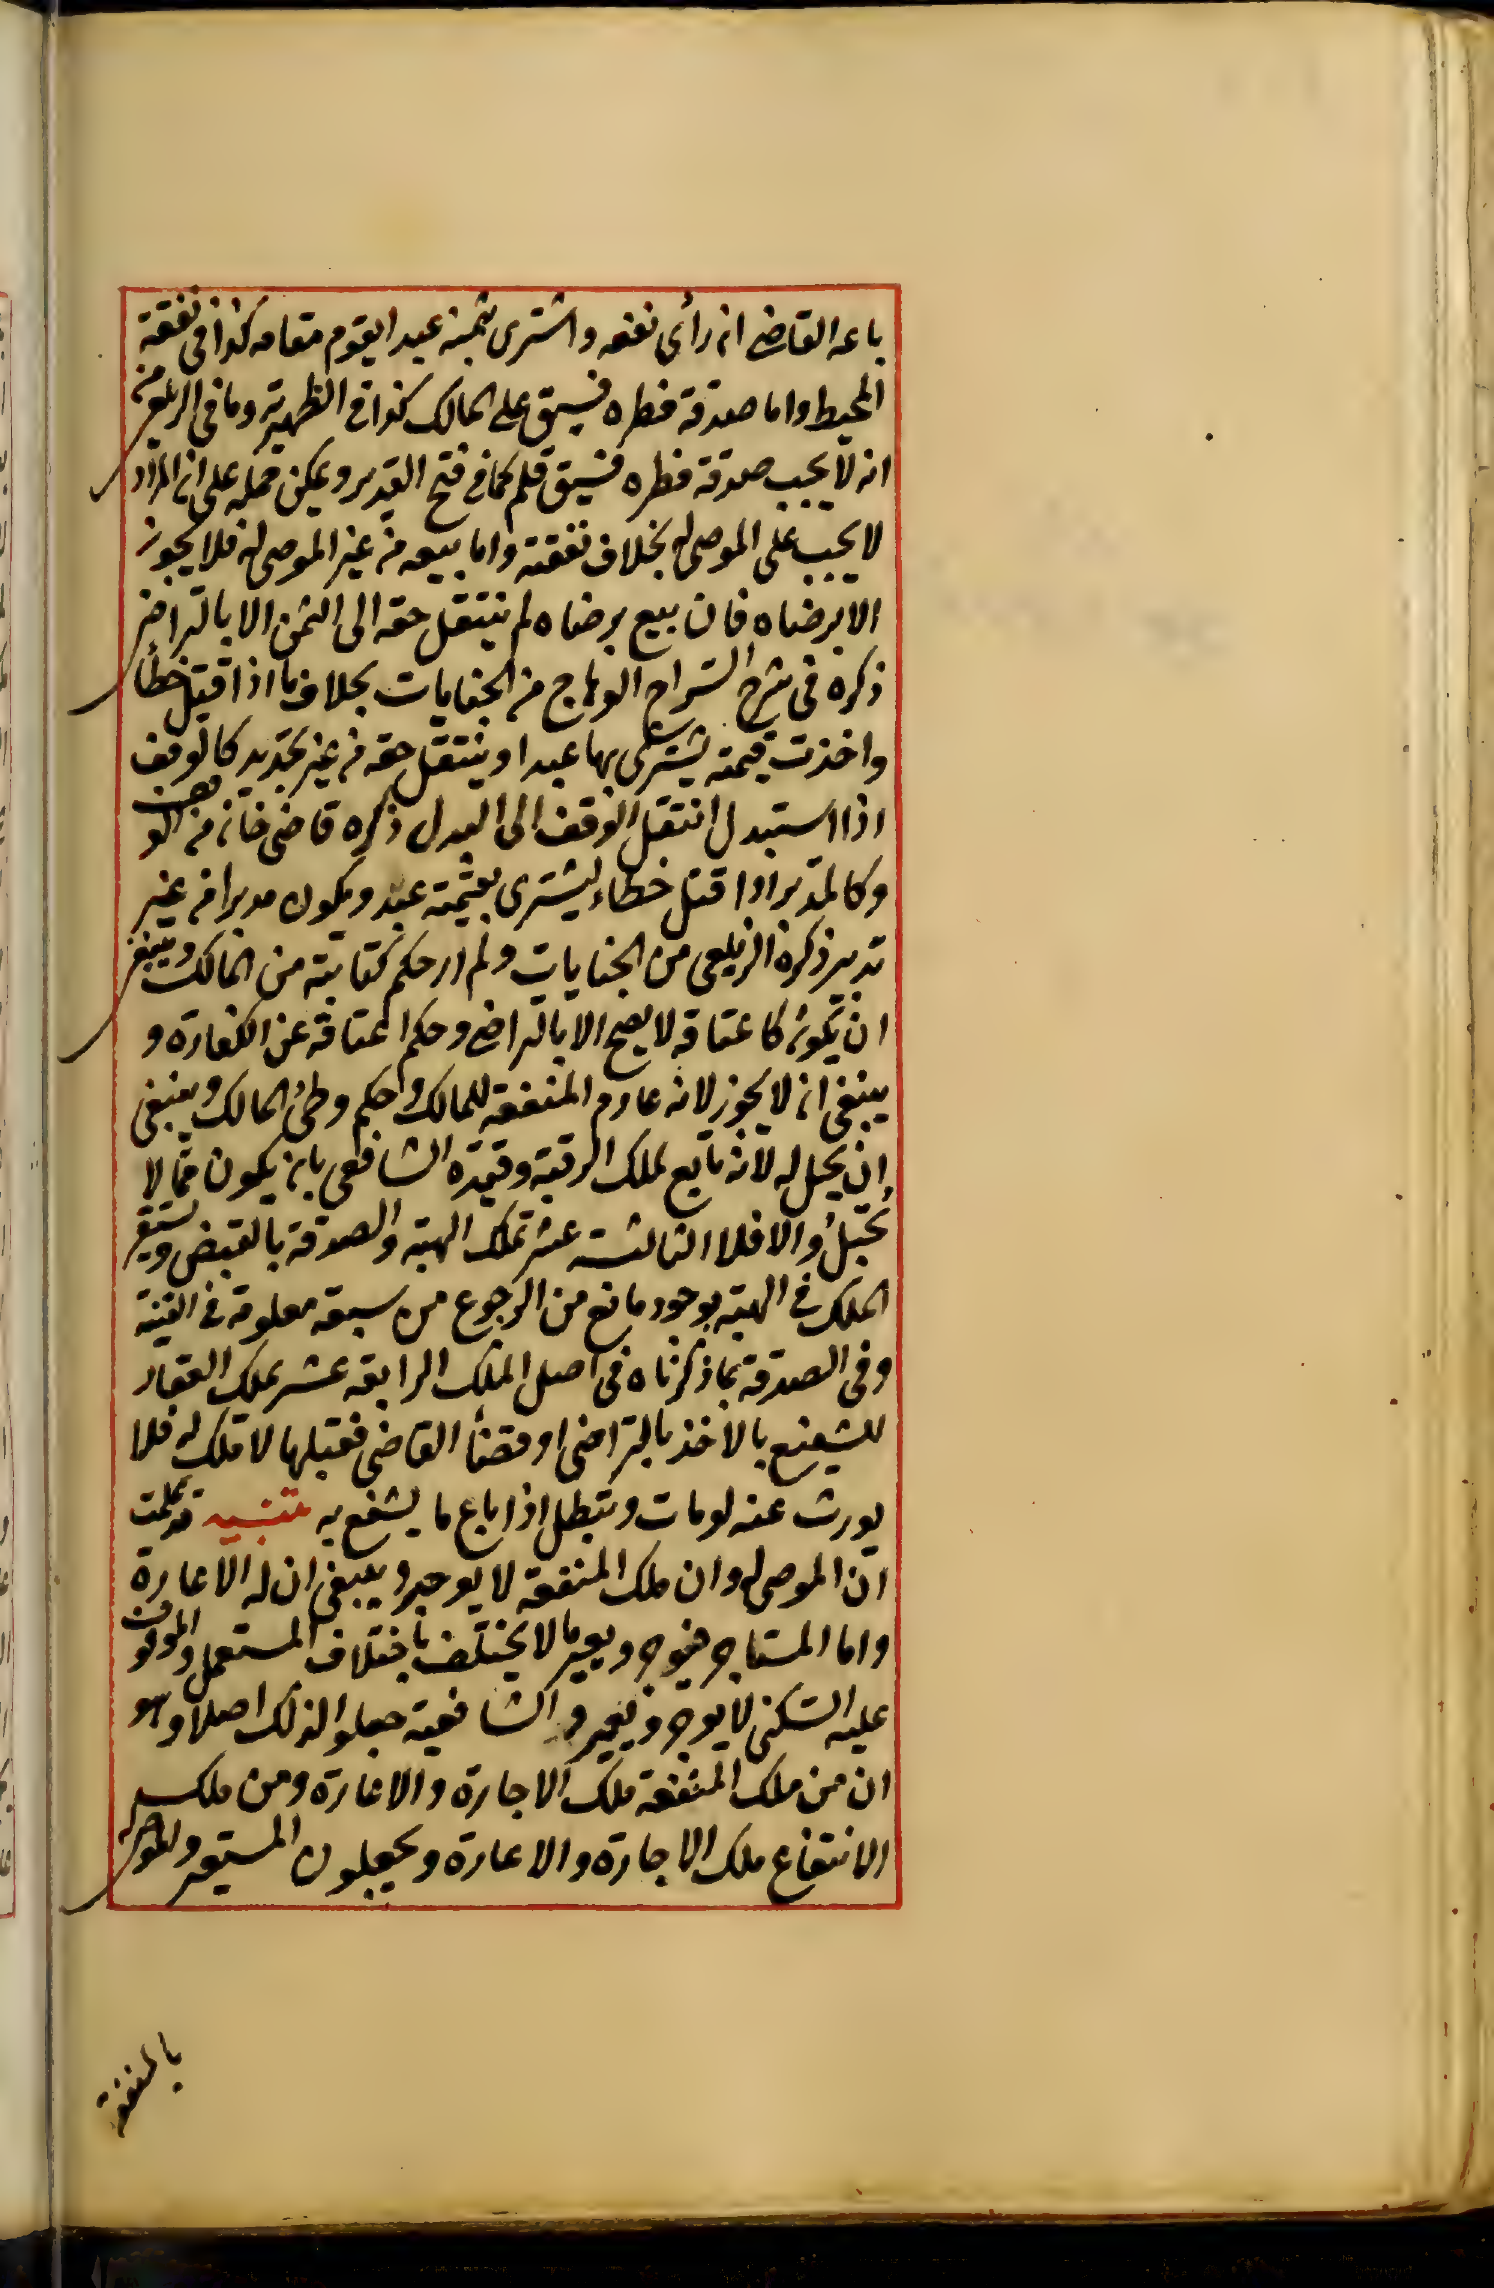 باعه القاضي ان رأى نفعه واشترى بثمنه عبدا يقوم مقامه كذا في نفقة
المحيط واما صدقة فطره فسبق على المالك كذا في الظهيرية وما في الزيلعي من
انه لا يجب صدقة فطره فسبق قلم كما في فتح القدير ويمكن حمله على ان المراد
لا يجب على الموصى له بخلاف نفقته واما بيعه من غير الموصى له فلا يجوز
الا برضاه فان بيع برضاه لم ينتقل حقه الى الثمن الا بالتراضي
ذكره في شرح السراج الوهاج من الجنايات بخلاف ما اذا قتل خطأ
واخذت قيمته يشترى بها عبدا وينتقل حقه من غير تجديد كالوقف
اذا استبدل انتقل الوقف الى البدل ذكره قاضى خان من الوقف
وكالمدبر اذا قتل خطاء يشترى بقيمته عبد ويكون مدبرا من غير
تدبير ذكره الزيلعى من الجنايات ولم ار حكم كتابته من المالك وينبغي
ان تكون كاعتاقه لا يصح الا بالتراضي وحكم اعتاقه عن الكفارة و
ينبغى ان لا يجوز لانه عادم المنفعة للمالك وحكم وطئ المالك وينبغى
ان يحل له لانه تابع لملك الرقبة وقيده الشافعى بان يكون ممن لا
تحبل والا فلا الثالثة عشر تملك الهبة والصدقة بالقبض ويستقر
الملك في الهبة بوجود مانع من الرجوع من سبعة معلومة في الفقه
وفى الصدقة بما ذكرناه في اصل الملك الرابعة عشر يملك العقار
للشفيع بالاخذ بالتراضى او قضأ القاضى فقبلها لا ملك له فلا
يورث عنه لو مات وتبطل اذا باع ما يشفع به تنبيه قد علمت
ان الموصى له وان ملك المنفعة لا يوجر وينبغى ان له الاعارة
واما المستاجر فيوجر ويعير ما لا يختلف باختلاف المستعمل والموقوف
عليه السكنى لا يوجر ويعير والشافعية جعلوا لذلك اصلا وهو
ان من ملك المنفعة ملك الاجارة والاعارة ومن ملك
الانتفاع ملك الاجارة والاعارة ويجعلون المستعير والموصى له
بالمنفعة